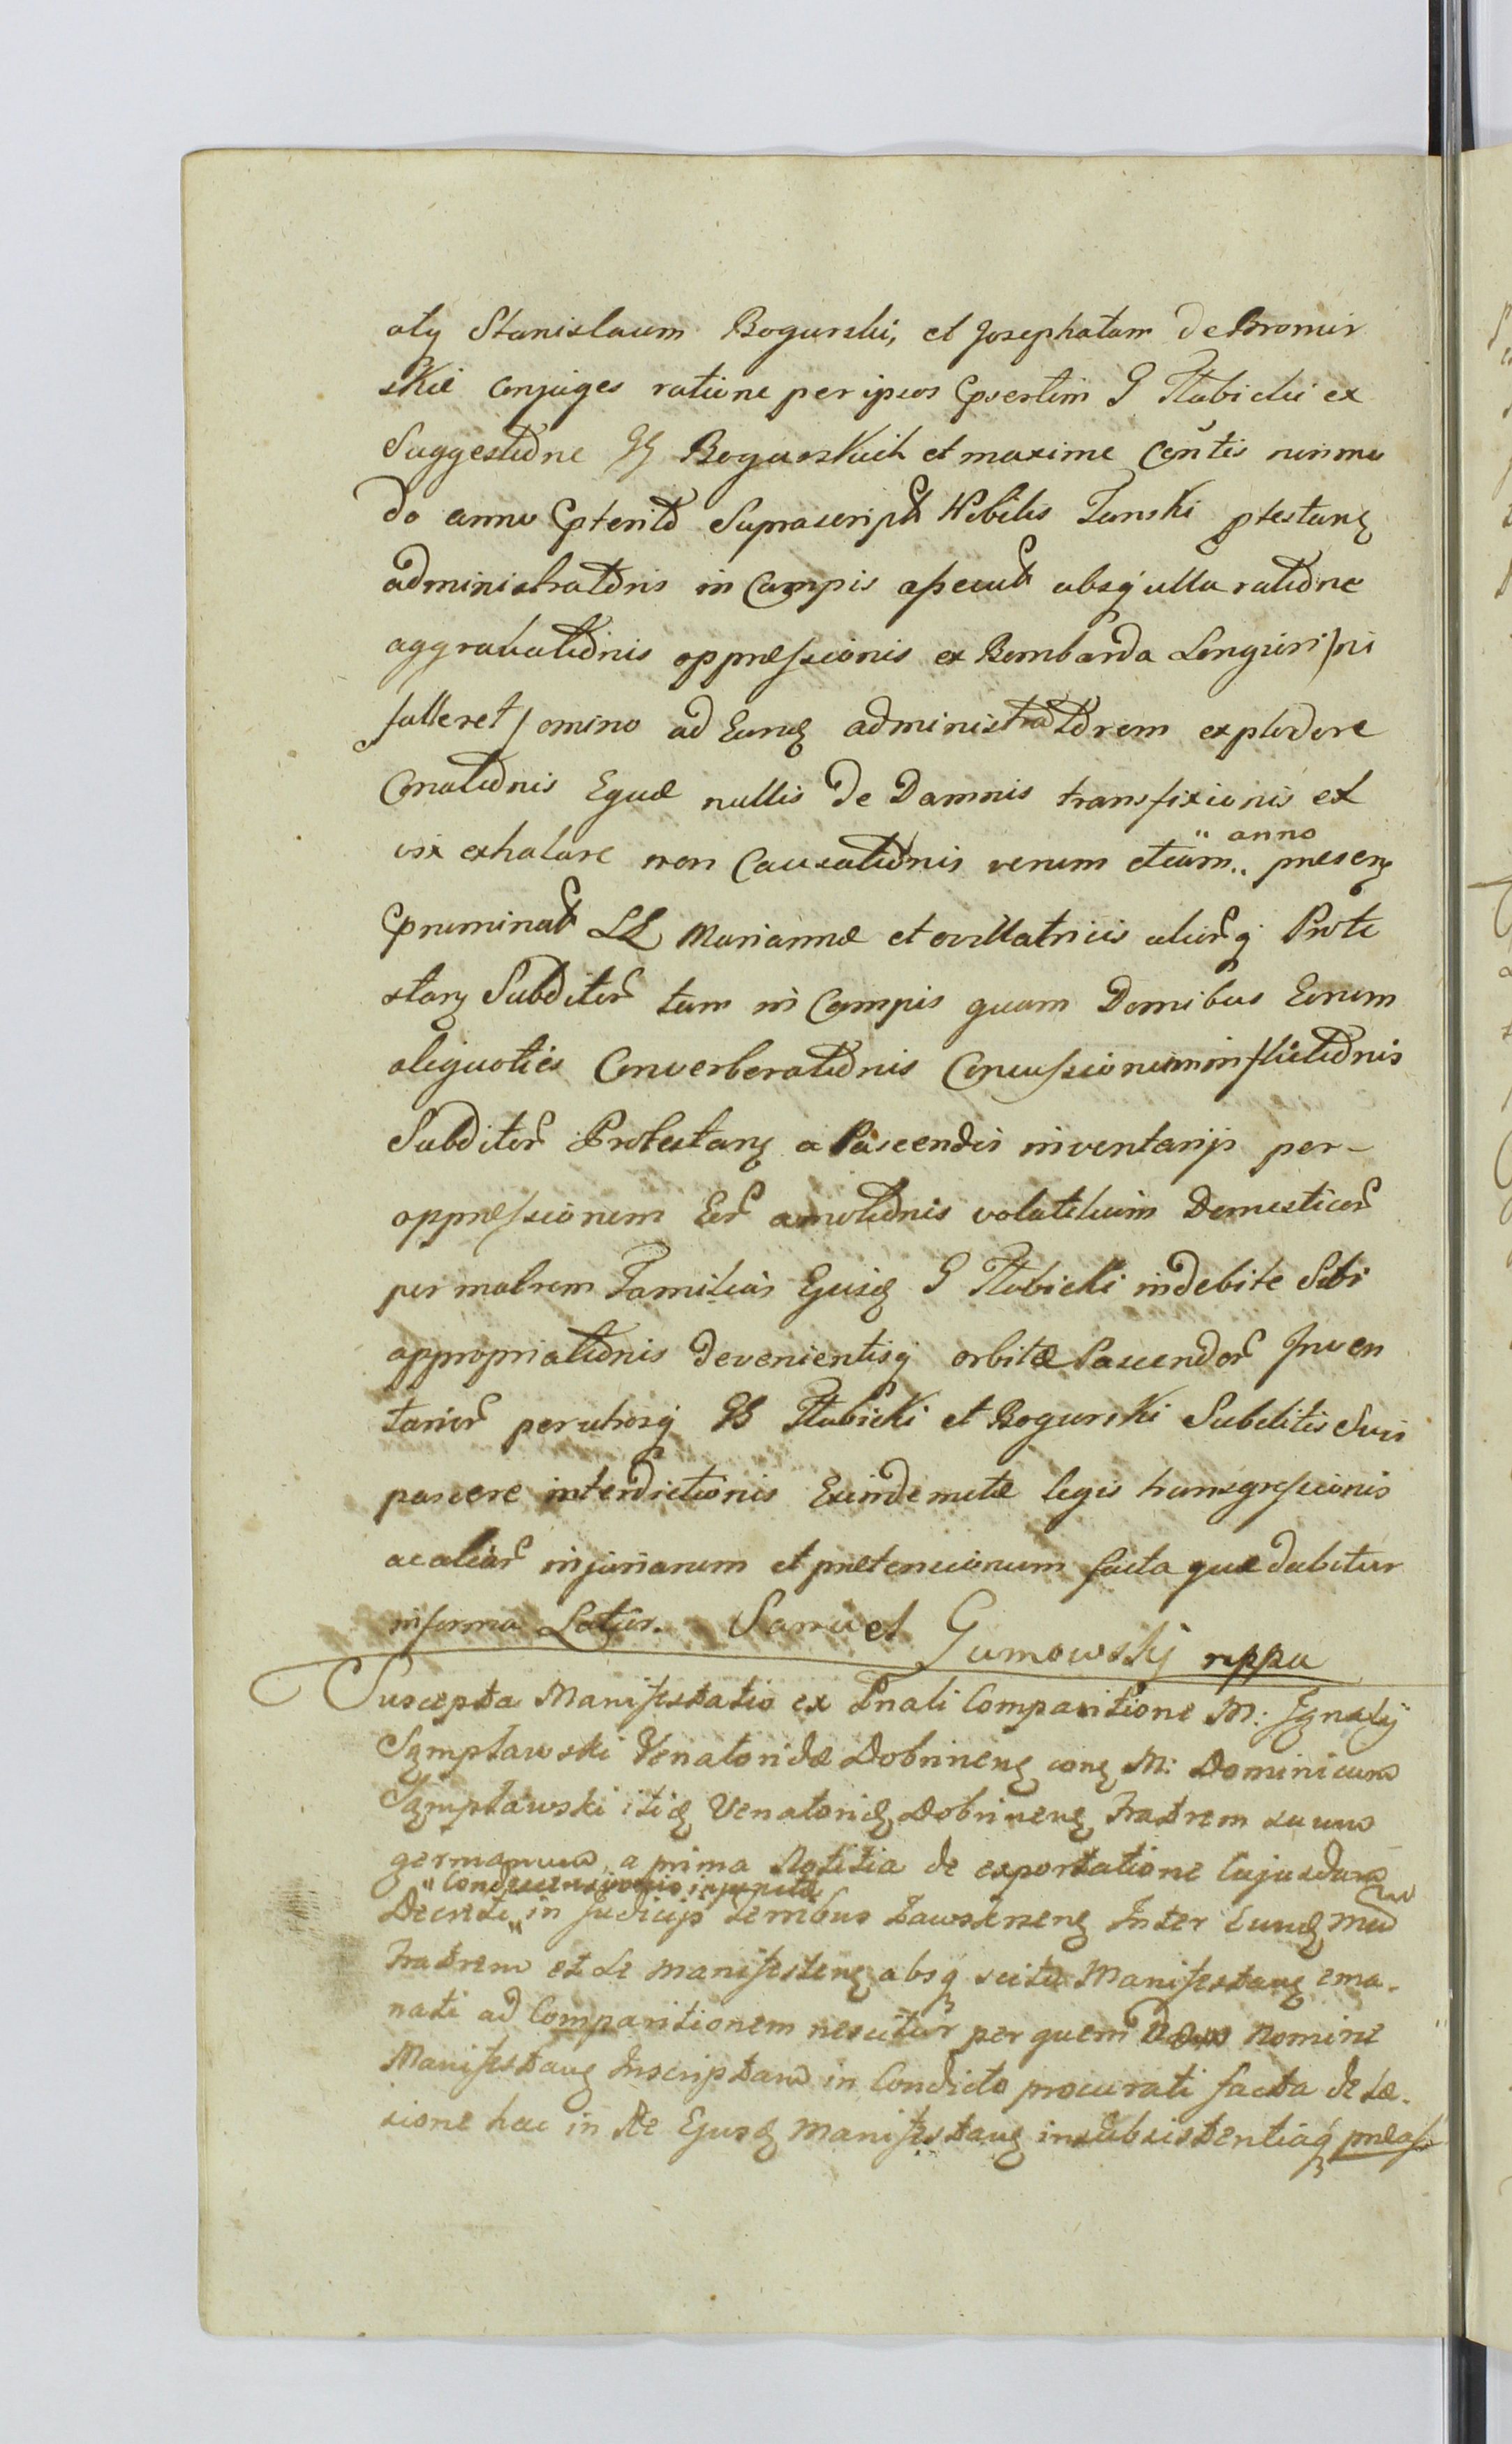 atq Stanislaum Bogurski, et Josephatam de Bromir
skie Conjuges ratione per ipsos Cpsertim G Tłubicki ex
Suggestione GG Bogurskich et maxime Contis nimmo
do anno Cpterito Suprascripti Nobilis Tanski ptestang
administratoris in Campis assecuti absq ulla ratione
aggravationis oppressionis ex Bombarda Longiori / ni
falleret / omino ad Eung administratorem explodere
Conationis Equae nullis de Damnis transfixionis et
vix exhalare non Causationis verum etiam anno presenz
Cpruminati LL Mariannae et ovillatricis aliorq Prote
stanz Subditor tam in Campis quam Domibus Eorum
aliquoties Converberationis Concussionum inflictionis
Subditor Protestanz a Pascendis inventarijs per-
oppressionem Eor amotionis volatilium Domesticor
per matrem Familias Ejusd G Tłubicki indebite Sibi
appropriationis devenientisq orbitae Pascendor Inven
tarior per utrosq GG Tłubicki et Bogurski Subditis Suis
pascere interdictionis Exinde metae legis transgressionis
ac aliar injuriarum et pretensionum facta quae dabitur
in forma Latior. Samuel Gumowskij mppa
Suscepta Manifestatio ex Pnali Comparitione M: Ignatij
Szmpławski Venatoridae Dobrinenz conz M: Dominicum
Szmpławski itid Venatorid Dobrinenz Fratrem suum
germanum a prima Notitia de exportatione Cujusdam
Condescensionis injunctae
Decreti in Judicijs Terribus Inter Eund
Fratrem et Se manifestenz absq scitu Manifestanz ema-
nati ad Comparitionem nescitur per quem nomine
Manifestanz Inscriptam in Condicto procurati facta de Lae-
sione hac in Re Ejusd Manifestanz insubsistentiaq